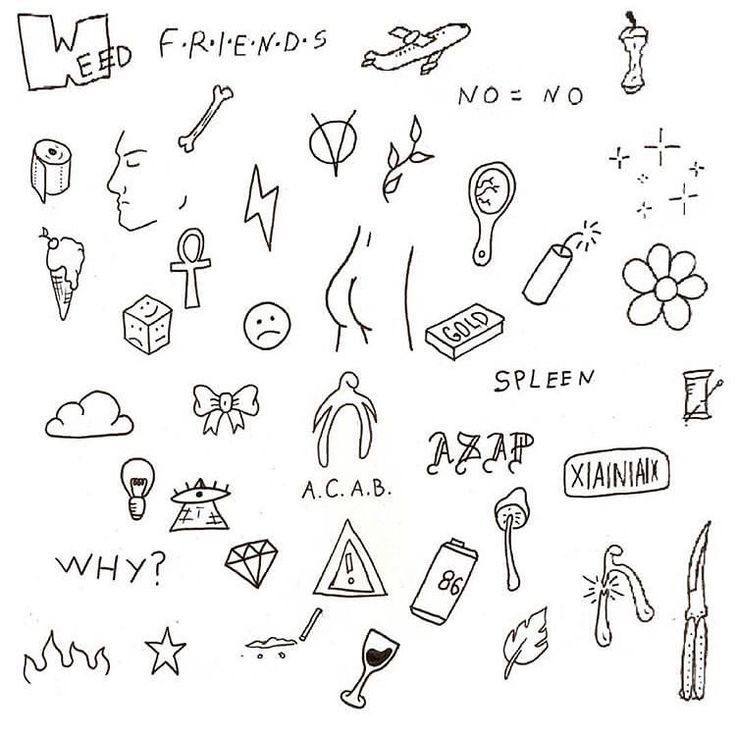 WEED
F.R.I.E.N.D.S
NO = NO
GOLD
SPLEEN
AZAP
XIAINIAIX
A.C.A.B.
WHY?
86